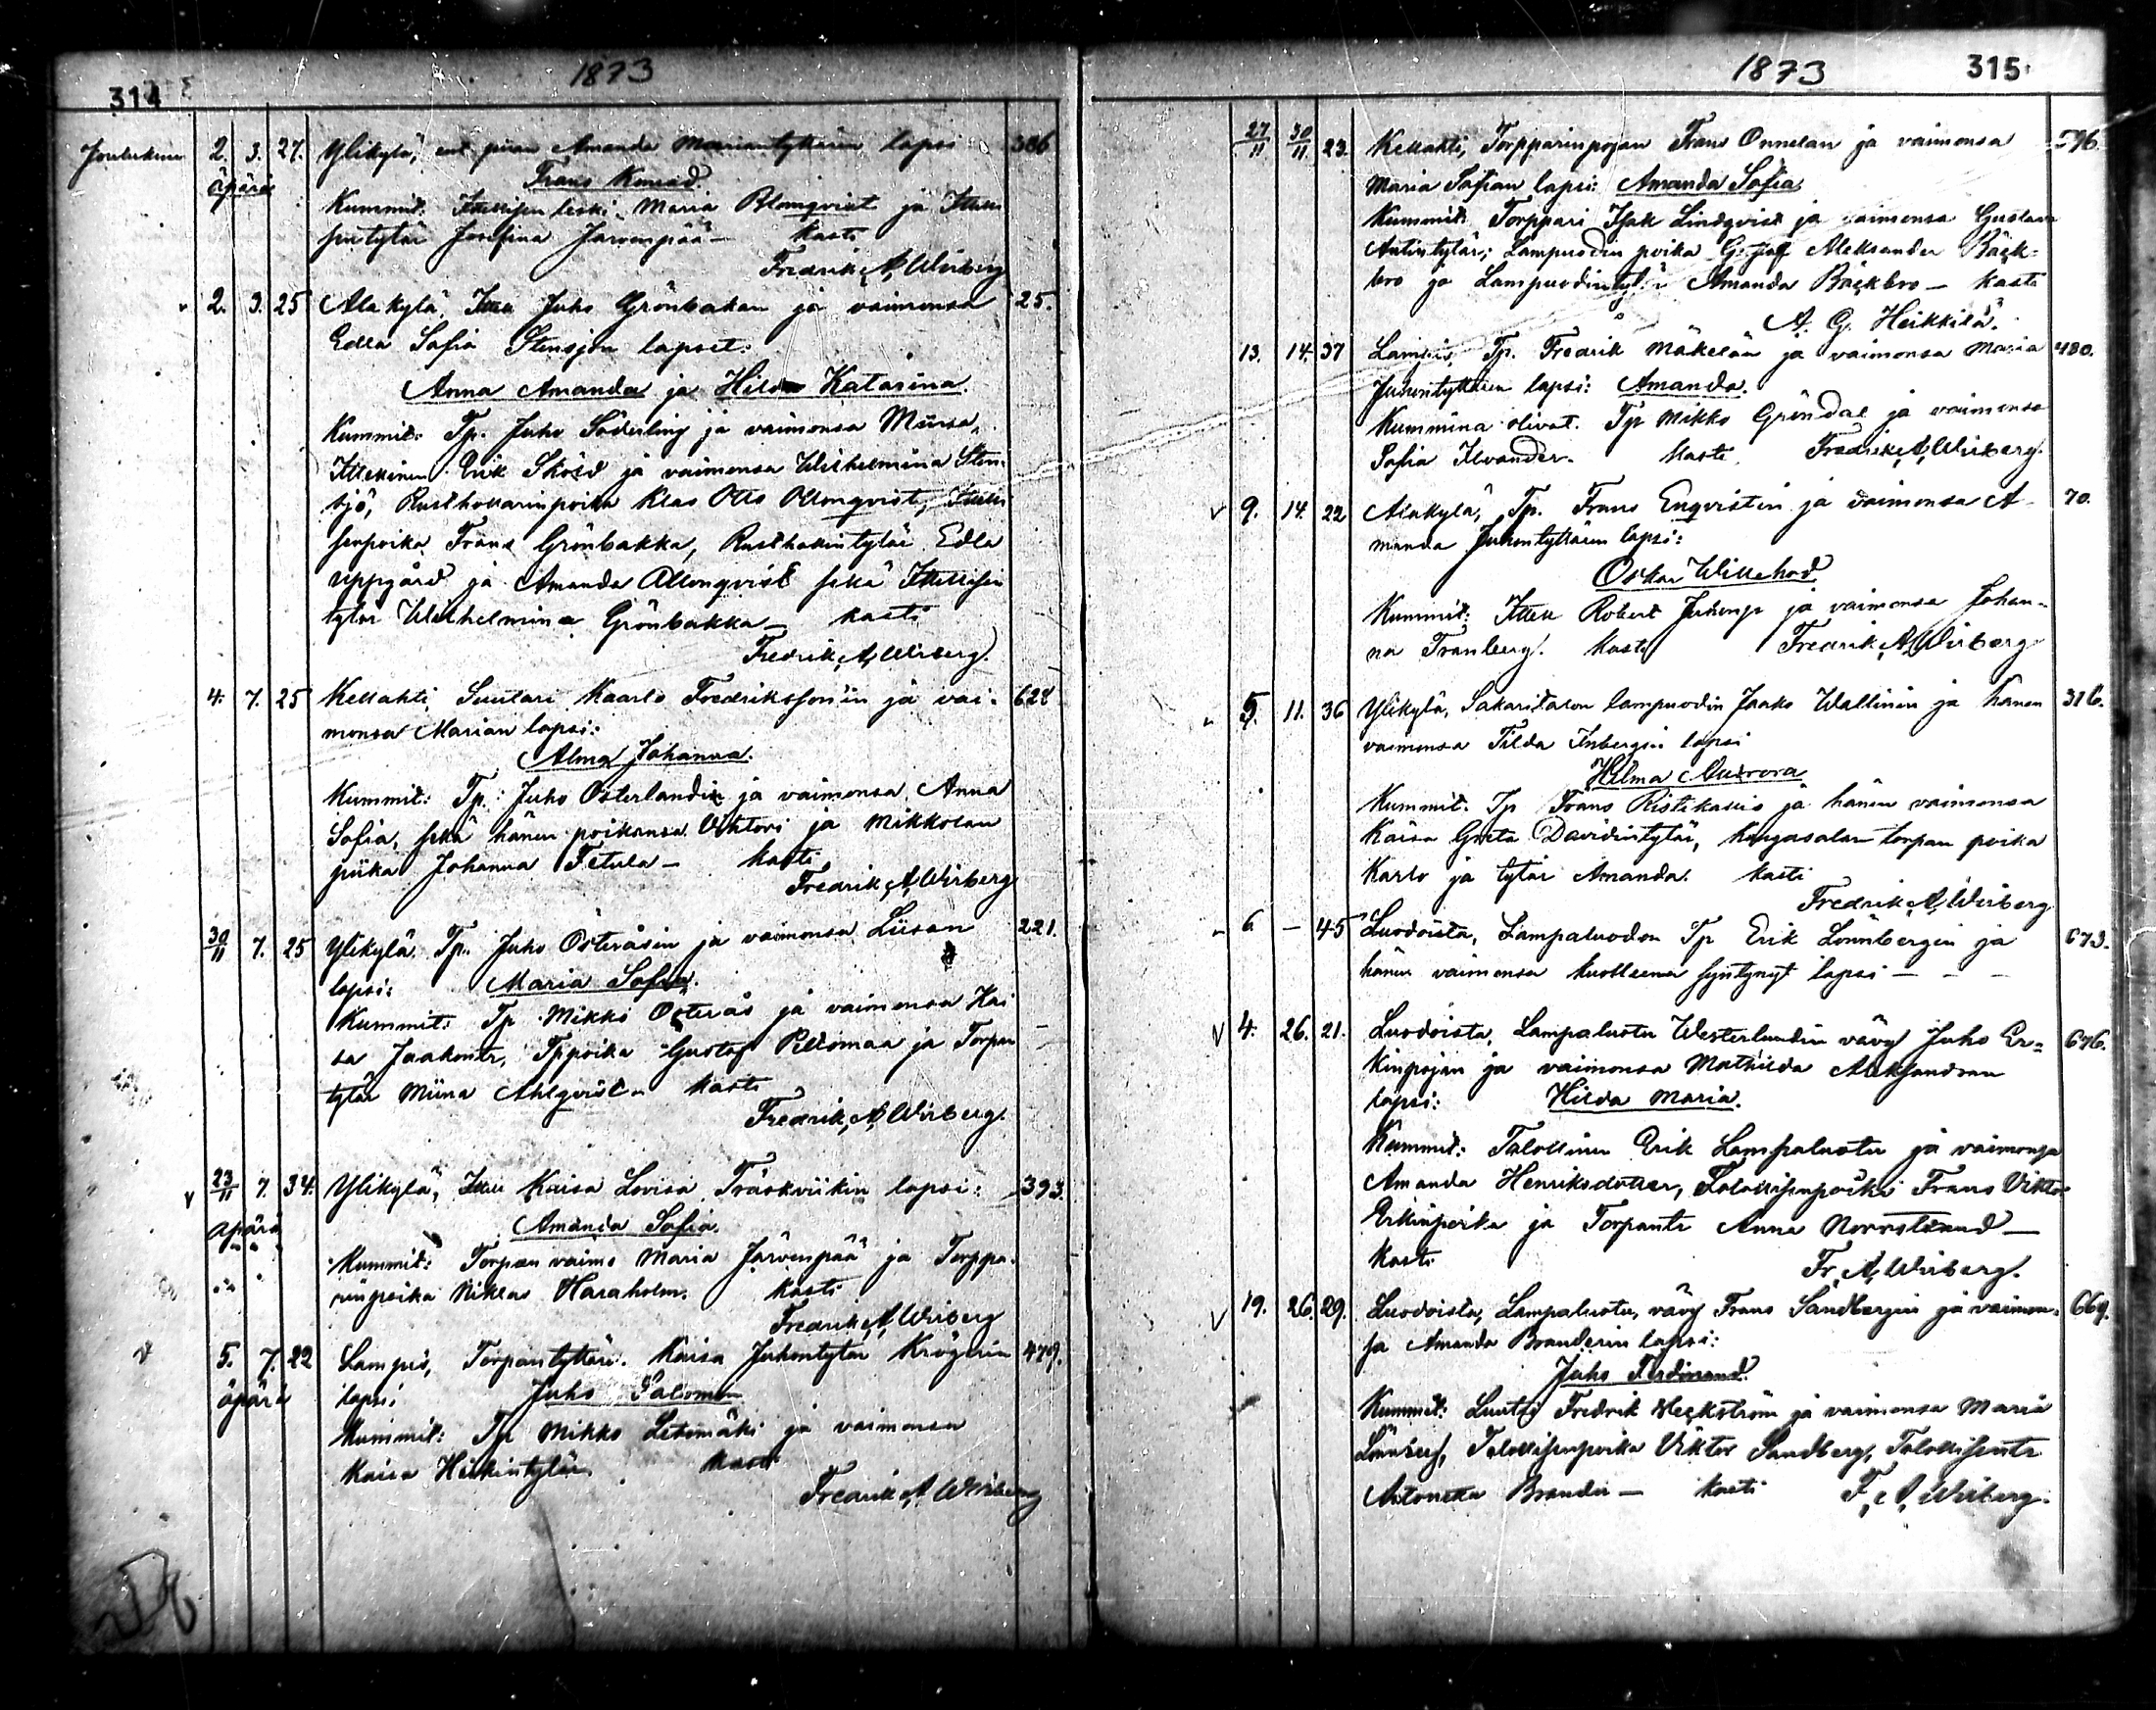 1873
314
Joulukuu 2. 3. 27. Ylikylä, ent. piian Amanda Mariantyttären lapsi 386
äpärä Frans Konrad
Kummit: Ittellisen leski Maria Blomqvist ja Ittelli
sentytär Josefina Järvenpää — kasti
Fredrik A. Wirberg
2. 3. 25 Alakylä, Ittell Juho Grönbakan ja vaimonsa 25.
Edla Sofia Stensjön lapset:
Anna Amanda ja Hilda Katarina.
Kummit: Tp. Juho Söderling ja vaimonsa Miina,
Ittellinen Erik Sköld ja vaimonsa Wilhelmina Sten-
sjö, Rusthollarinpoika Klas Otto Ollonqvist, Ittelli
senpoika Frans Grönbakka, Rusthollintytär Edla
Uppgård ja Amanda Ollonqvist sekä Ittellisen
tytär Wilhelmina Grönbakka — kasti
Fredrik A. Wirberg.
4. 7. 25 Kellahti Suutari Kaarlo Fredriksson'in ja vai- 628
monsa Marian lapsi:
Alma Johanna.
Kummit: Tp. Juho Österlandin ja vaimonsa Anna
Sofia, sekä hänen poikansa Viktori ja Mikkolan
piika Johanna Tetula — kasti
Fredrik A. Wirberg
30/11 7. 25 Ylikylä Tp. Juho Österåsin ja vaimonsa Liisan 221.
lapsi: Maria Sofia.
Kummit: Tp. Mikki Österås ja vaimonsa Kai
sa Jaakontr, Tppoika Gustaf Peltomaa ja Torpan
tytär Miina Ahlqvist — kasti
Fredrik A. Wirberg.
23/11 7. 34. Ylikylä, Ittell Kaisa Lovisa Träskviikin lapsi: 393.
äpärä Amanda Sofia.
Kummit: Torpan vaimo Maria Järvenpää ja Torppa-
rinpoika Niklas Haraholm. kasti
Fredrik A. Wirberg
5. 7. 22 Lampis, Torpantyttären Kaisa Juhontytär Krögerin 479.
äpärä lapsi: Juho Salomon
Kummit: Tp Mikko Letomäki ja vaimonsa
Kaisa Heikintytär. kasti
Fredrik A. Wirberg
1873 315
27/11 30/11 23. Kellahti, Torpparinpojan Frans Onnelan ja vaimonsa 596.
Maria Sofian lapsi: Amanda Sofia
Kummit: Torppari Isak Lindqvist ja vaimonsa Gustava
Antintytär; Lampuodin poika Gustaf Aleksander Bäck-
bro ja Lampuodintytär Amanda Bäckbro — kasti
A. G. Heikkilä.
13. 14. 37 Lampis, Tp. Fredrik Mäkelän ja vaimonsa Maria 480.
Juhontyttären lapsi: Amanda.
Kummina olivat. Tp Mikko Gröndal ja vaimonsa
Sofia Ilvander. kasti Fredrik A. Wirberg.
9. 14. 22 Alakylä, Tp. Frans Enqvistin ja vaimonsa A- 70.
manda Juhontyttären lapsi:
Oskar Willehad
Kummit: Ittell Robert ja vaimonsa Johan-
na Tranberg. kasti Fredrik A. Wirberg
5. 11. 36 Ylikylä, Sakaritalon lampuodin Jaako Wallinin ja hänen 316.
vaimonsa Tilda Inbergin lapsi
Hilma Aurora
Kummit. Tp Frans Ristikallis ja hänen vaimonsa
Kaisa Greta Davidintytär, Kangasalan torpan poika
Karlo ja tytär Amanda. kasti
Fredrik A. Wirberg
6. — 45 Luodoista, Lampaluodon Tp Erik Lönnbergin ja 673.
hänen vaimonsa kuolleena syntynyt lapsi — — —
4. 26. 21. Luodoista, Lampaluotu Westerlundin vävy Juho Er- 676.
kinpojan ja vaimonsa Mathilda Aleksandran
lapsi: Hilda Maria.
Kummit: Talollinen Erik Lampaluotu ja vaimonsa
Amanda Henriksdotter, Talollisenpoika Frans Viktor
Erkinpoika ja Torpantr Anna Norrstrand —
kasti Fr. A. Wirberg.
19. 26. 29. Luodoista, Lampaluotu, vävy Frans Sandbergin ja vaimon- 669.
sa Amanda Branderin lapsi:
Juho Ferdinand.
Kummit: Luutsi Fredrik Heckström ja vaimonsa Maria
Talollisenpoika Viktor Sandberg, Talollisentr
Antonetta Brander — kasti F. A. Wirberg.